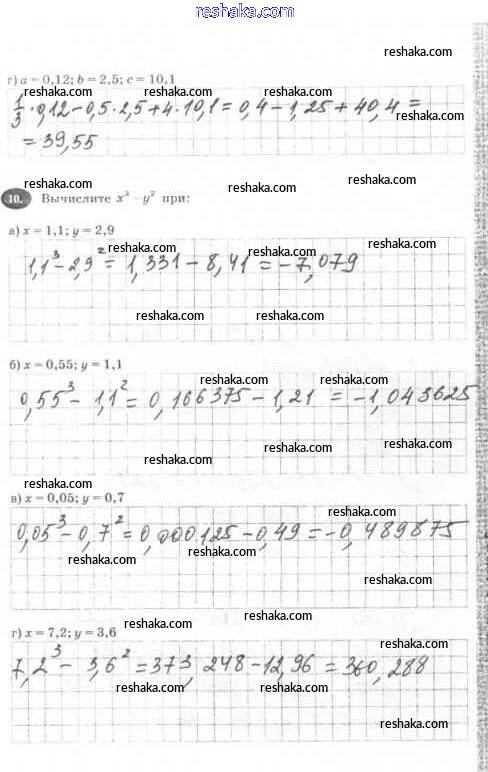 www.reshaka.com
reshaka.com
г) a = 0,12; b = 2,5; c = 10,1
reshaka.com reshaka.com
1/3 · 0,12 − 0,5 · 2,5 + 4 · 10,1 = 0,4 − 1,25 + 40,4 =
reshaka.com
= 39,55
reshaka.com reshaka.com
reshaka.com reshaka.com
10. Вычислите x³ − y² при:
reshaka.com
а) x = 1,1; y = 2,9
reshaka.com reshaka.com
1,1³ − 2,9² = 1,331 − 8,41 = −7,079
reshaka.com
reshaka.com reshaka.com
reshaka.com
б) x = 0,55; y = 1,1
reshaka.com reshaka.com
0,55³ − 1,1² = 0,166375 − 1,21 = −1,043625
reshaka.com
reshaka.com
reshaka.com
в) x = 0,05; y = 0,7
reshaka.com
0,05³ − 0,7² = 0,000125 − 0,49 = −0,489875
reshaka.com
reshaka.com
reshaka.com
reshaka.com reshaka.com
г) x = 7,2; y = 3,6
reshaka.com
7,2³ − 3,6² = 373,248 − 12,96 = 360,288
reshaka.com reshaka.com
reshaka.com